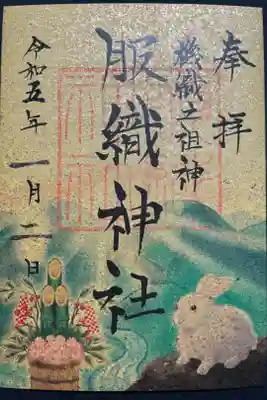 奉拝
機織之祖神
服織神社
令和五年
一月二日